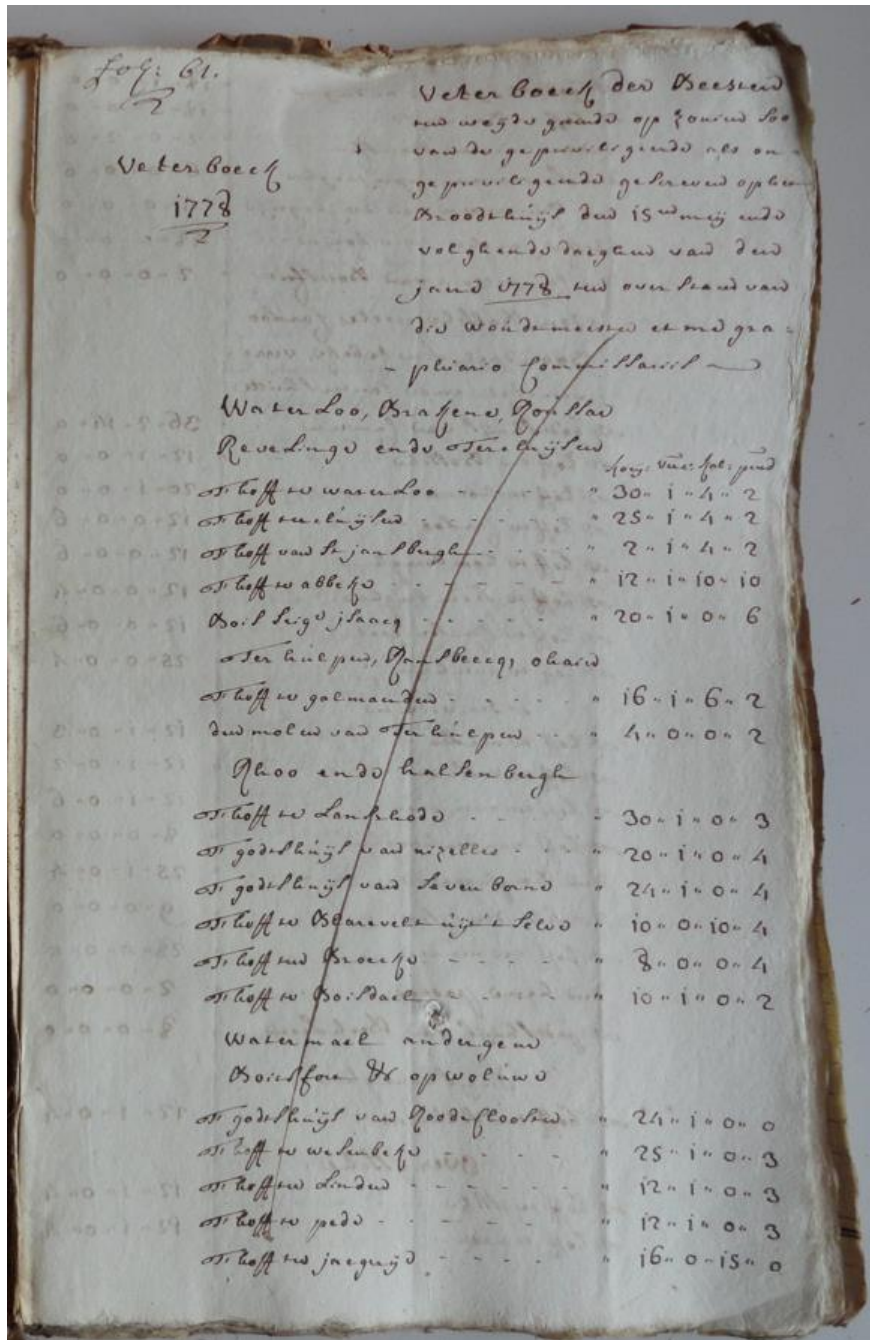 fol: 61.
Veterboeck
1778
Veter boeck der Beesten
ten weyde gaende op zonien soo
van de gepreviligeerde als on-
gepreviligeerde geschreven op het
Broodthuijs den 15 meij ende
volghende daeghen van den
jaere 1778 ten overstaen van
die woudtmeester et me gra-
- phiario Commissariis
Waterloo, Brakene, Roussar
Revelinge ende Tercluijsen
T'hoff te waterloo - - - " 30 " 1 " 4 " 2
T'hoff tercluijsen - - - " 25 " 1 " 4 " 2
T'hoff van St jansbergh - - - " 2 " 1 " 4 " 2
T'hoff te abbeke - - - " 12 " 1 " 10 " 10
Bois seig jsaacq - - - " 20 " 1 " 0 " 6
Terhulpen, Ransbeecq, ohain
T'hoff te galmaerden - - - " 16 " 1 " 6 " 2
den molen van Terhulpen - - " 4 " 0 " 0 " 2
Rhoo ende halsenbergh
T'hoff te Lansrhode - - " 30 " 1 " 0 " 3
T'godtshuijs van nizelles - - " 20 " 1 " 0 " 4
T'godtshuijs van Sevenborne " 24 " 1 " 0 " 4
T'hoff te Blarevelt uijt't selve " 10 " 0 " 10 " 4
T'hoff ten Broecke - - - " 8 " 0 " 0 " 4
T'hoff te Boisdael - - - " 10 " 1 " 0 " 2
Watermael andergem
Boitsfort & opwoluwe
T'godtshuijs van Roodeclooster " 24 " 1 " 0 " 0
T'hoff te wesenbeke - - - " 25 " 1 " 0 " 3
T'hoff ter Linden - - - " 12 " 1 " 0 " 3
T'hoff te pede - - - " 12 " 1 " 0 " 3
T'hoff ten jacquijn - - - " 16 " 0 " 15 " 0